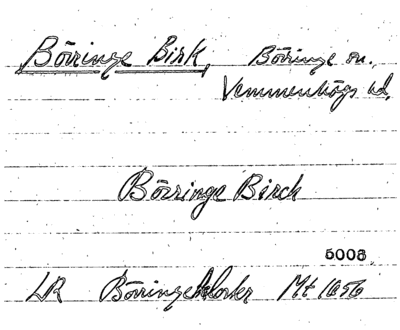 Börringe Birk, Börringe sn.,
Vemmenhögs hd,
Börringe Birch
5008.
LR Börringekloster Mt 1650